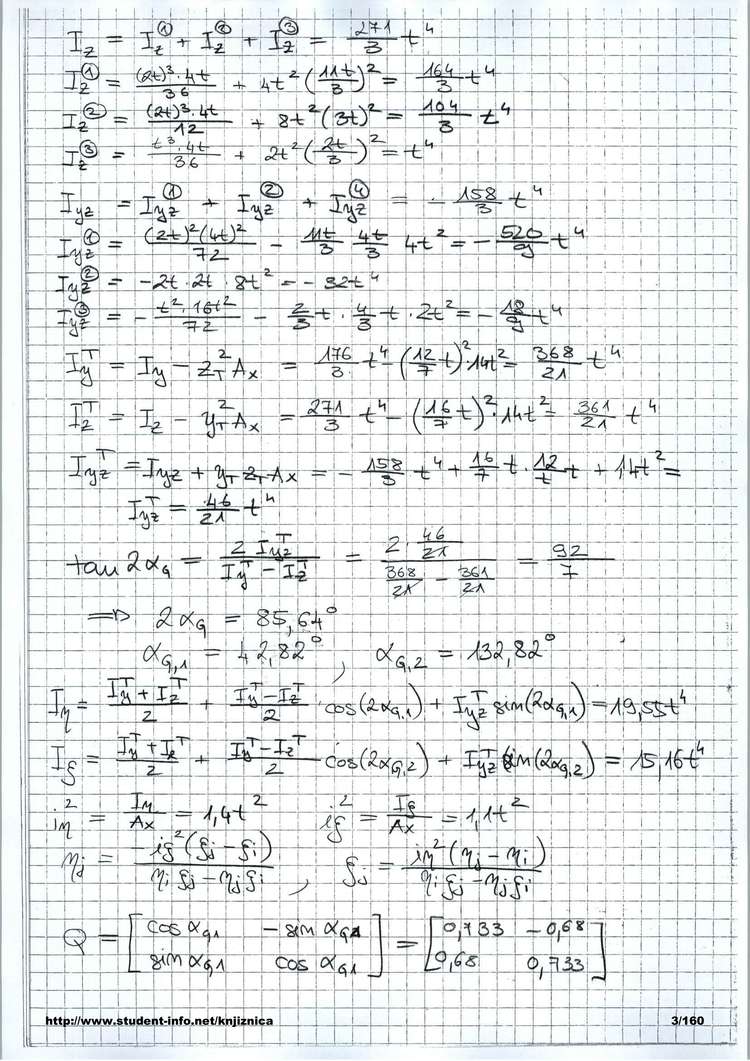 I_z = I_z^① + I_z^② + I_z^③ = 271/3 t^4
I_z^① = (2t)^3·4t/36 + 4t^2 (11t/3)^2 = 164/3 t^4
I_z^② = (2t)^3·4t/12 + 8t^2 (3t)^2 = 104/3 t^4
I_z^③ = t^3·4t/36 + 2t^2 (2t/3)^2 = t^4
I_yz = I_yz^① + I_yz^② + I_yz^④ = - 158/3 t^4
I_yz^① = (2t)^2(4t)^2/72 - 11t/3 4t/3 4t^2 = - 520/9 t^4
I_yz^② = -2t·2t·8t^2 = -32t^4
I_yz^③ = - t^2·16t^2/72 - 2/3 t·4/3 t·2t^2 = - 18/9 t^4
I_y^T = I_y - z_T^2 A_x = 176/3 t^4 - (12/7 t)^2·14t^2 = 368/21 t^4
I_z^T = I_z - y_T^2 A_x = 271/3 t^4 - (16/7 t)^2·14t^2 = 361/21 t^4
I_yz^T = I_yz + y_T z_T A_x = - 158/3 t^4 + 16/7 t·12/t t + 14t^2 =
I_yz^T = 46/21 t^4
tan 2α_G = 2 I_yz^T / (I_y^T - I_z^T) = 2·46/21 / (368/21 - 361/21) = 92/7
⇒ 2α_G = 85,64°
α_G,1 = 42,82° , α_G,2 = 132,82°
I_η = (I_y^T + I_z^T)/2 + (I_y^T - I_z^T)/2 cos(2α_G,1) + I_yz^T sin(2α_G,1) = 19,55t^4
I_ξ = (I_y^T + I_z^T)/2 + (I_y^T - I_z^T)/2 cos(2α_G,2) + I_yz^T sin(2α_G,2) = 15,16t^4
i_η^2 = I_η/A_x = 1,4t^2 i_ξ^2 = I_ξ/A_x = 1,1t^2
η_j = -i_ξ^2 (ξ_j - ξ_i) / (η_i ξ_j - η_j ξ_i) , ξ_j = i_η^2 (η_j - η_i) / (η_i ξ_j - η_j ξ_i)
Q = [cos α_G1 - sin α_G1 = [0,733 -0,68
sin α_G,1 cos α_G1] 0,68 0,733]
http://www.student-info.net/knjiznica 3/160